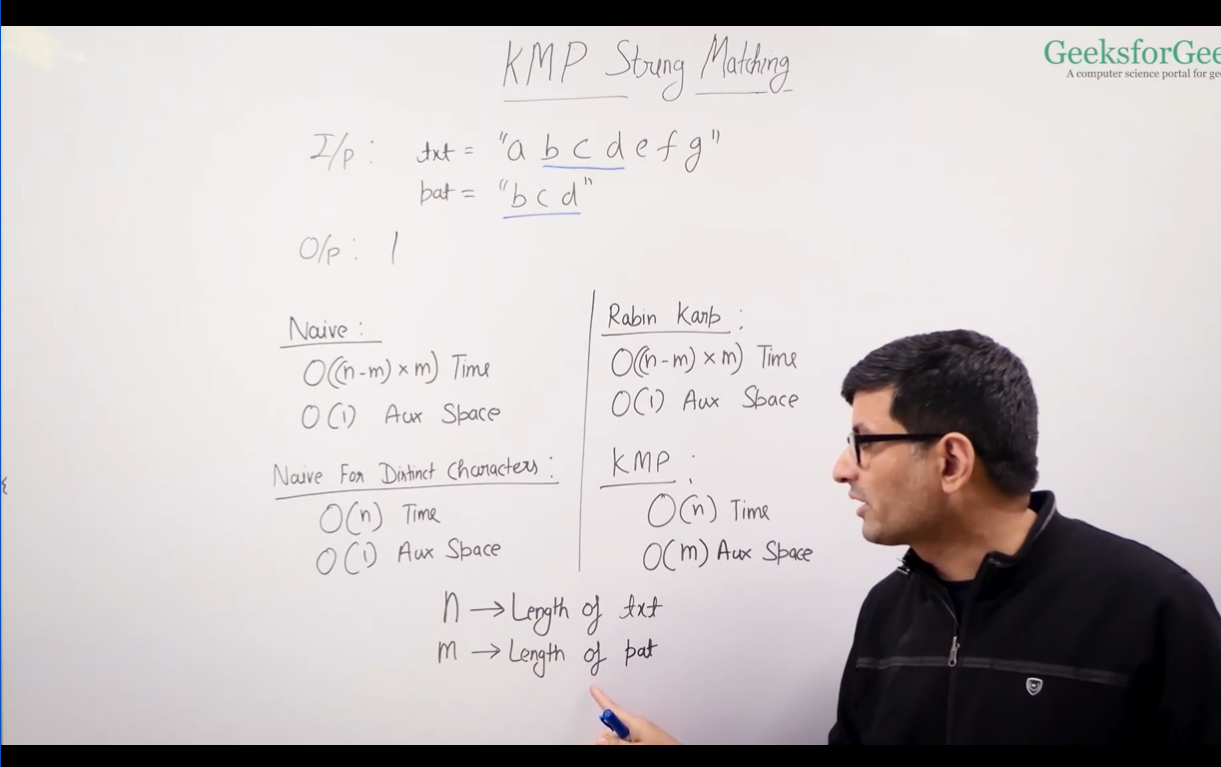 KMP String Matching
GeeksforGee
A computer science portal for ge
I/p : txt = "a b c d e f g"
pat = "b c d"
O/p : 1
Naive :
O((n-m) × m) Time
O(1) Aux Space
Naive For Distinct Characters :
O(n) Time
O(1) Aux Space
Rabin Karp :
O((n-m) × m) Time
O(1) Aux Space
KMP :
O(n) Time
O(m) Aux Space
n → Length of txt
m → Length of pat